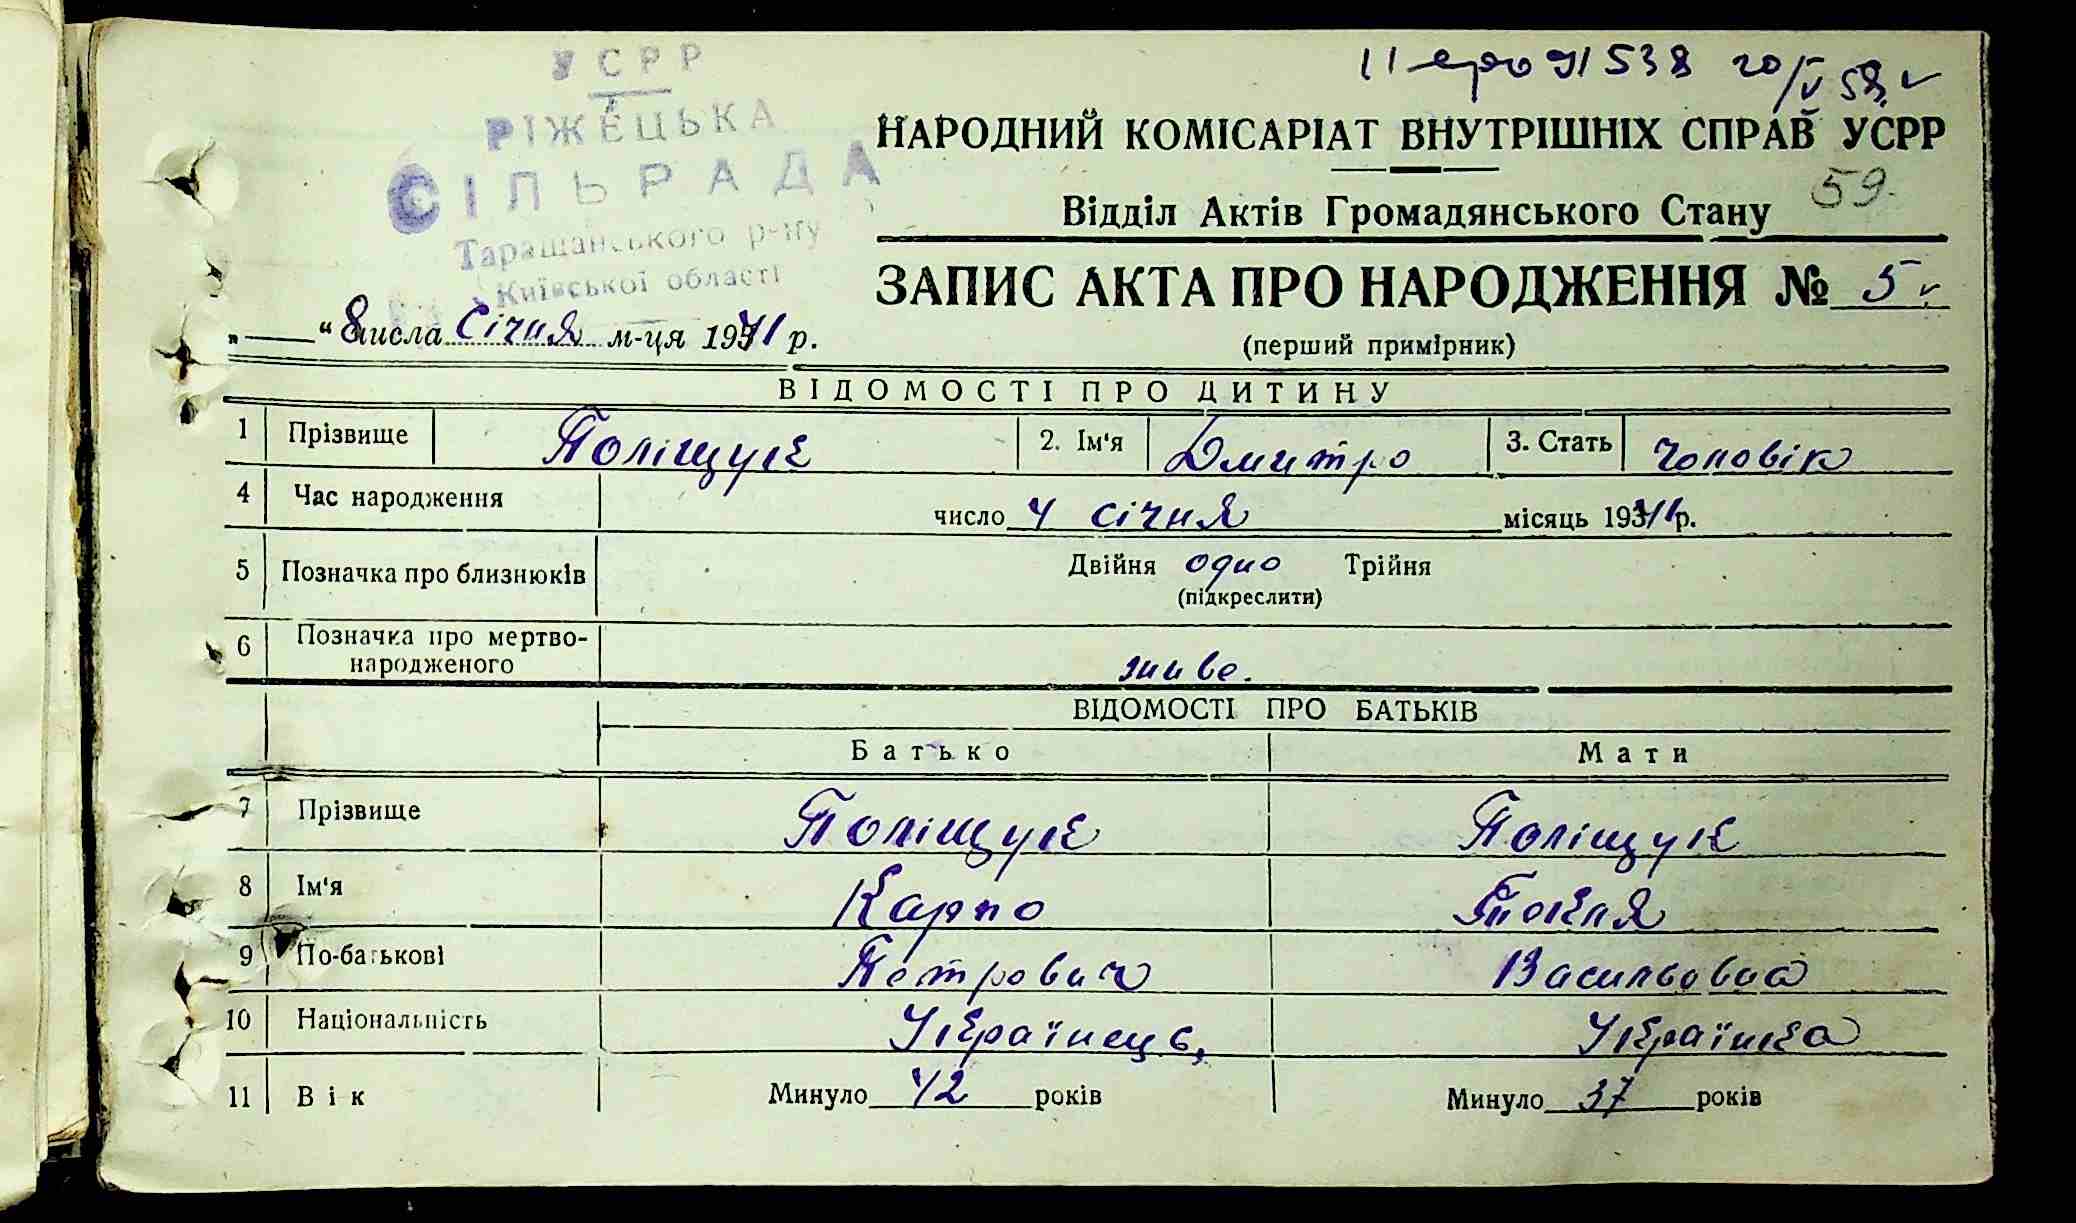 УСРР
РІЖЕЦЬКА
СІЛЬРАДА
Таращанського р-ну
Київської області
538 20/V 58
НАРОДНИЙ КОМІСАРІАТ ВНУТРІШНІХ СПРАВ УСРР
59
Відділ Актів Громадянського Стану
ЗАПИС АКТА ПРО НАРОДЖЕННЯ № 5
„ “ 8 числа Січня м-ця 1941 р.
(перший примірник)
ВІДОМОСТІ ПРО ДИТИНУ
1 Прізвище Поліщук 2. Ім'я Дмитро 3. Стать Чоловік
4 Час народження число 4 січня місяць 1941 р.
5 Позначка про близнюків Двійня одно Трійня
(підкреслити)
6 Позначка про мертво-
народженого живе.
ВІДОМОСТІ ПРО БАТЬКІВ
Батько Мати
7 Прізвище Поліщук Поліщук
8 Ім'я Карпо Текля
9 По-батькові Петрович Васильовна
10 Національність Українець, Українка
11 Вік Минуло 42 років Минуло 37 років